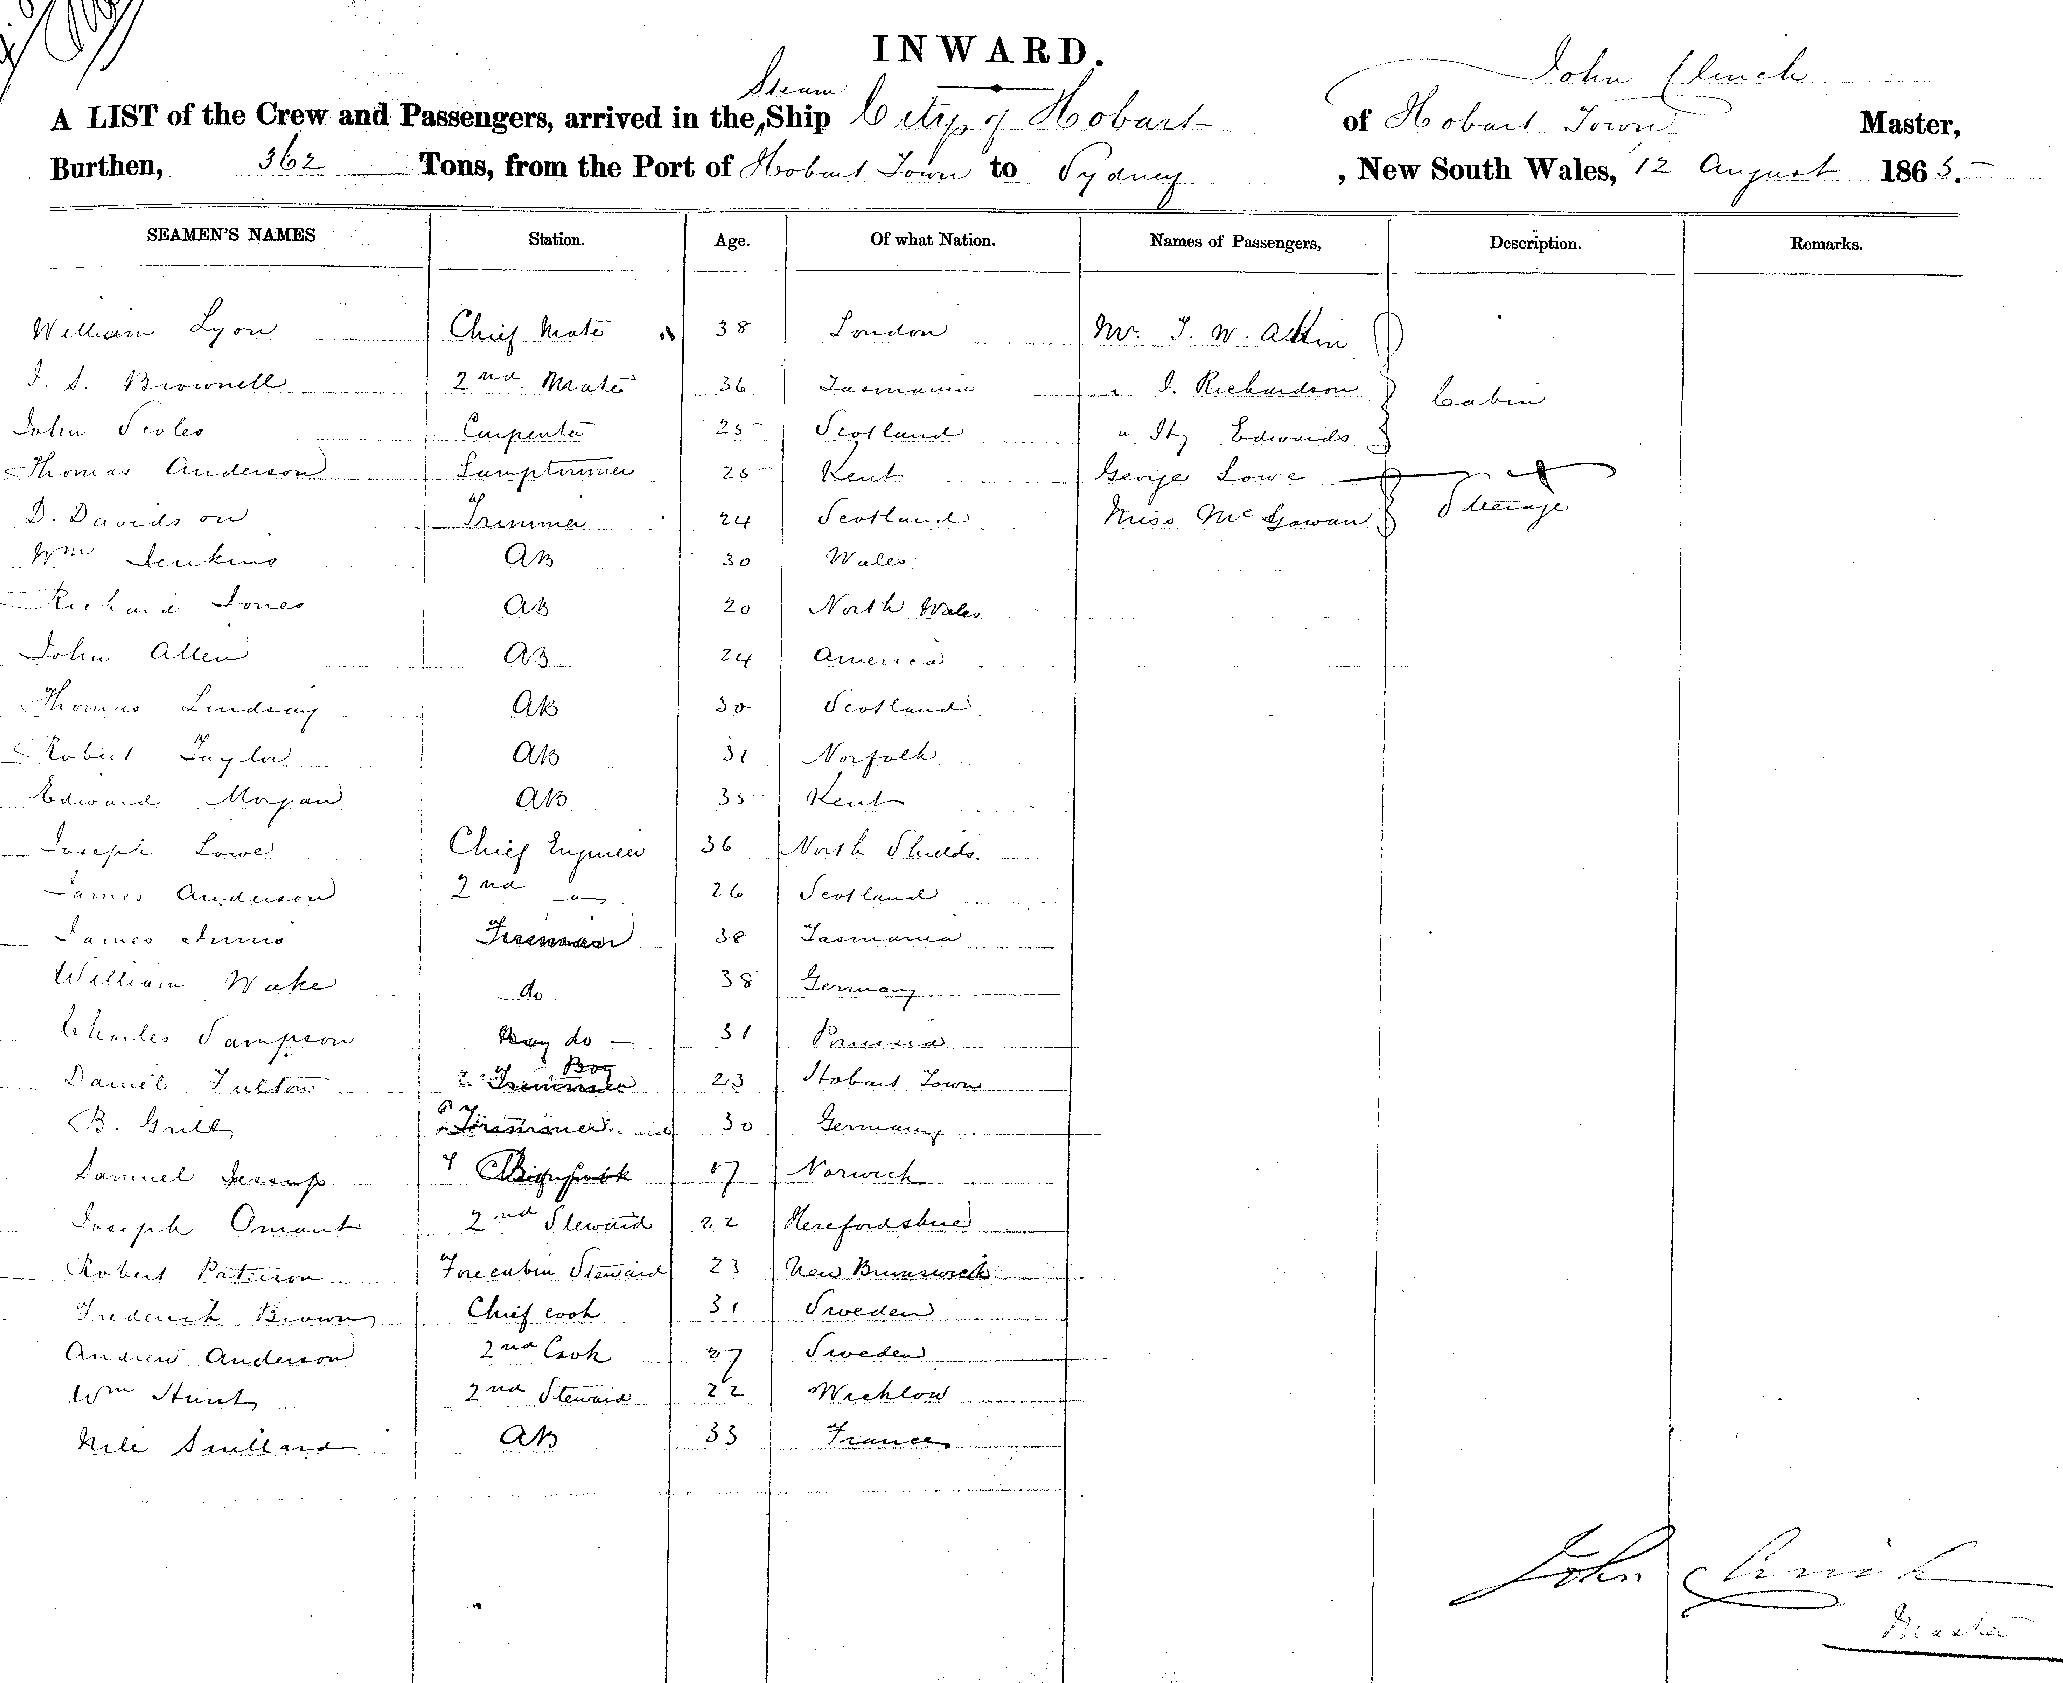 INWARD.
John Clinch
Steam
A LIST of the Crew and Passengers, arrived in the Ship City of Hobart of Hobart Town Master,
Burthen, 362 Tons, from the Port of Hobart Town to Sydney, New South Wales, 12 August 1865.
SEAMEN'S NAMES Station. Age. Of what Nation. Names of Passengers, Description. Remarks.
William Lyon Chief Mate 38 London Mr. J. W.
Brownell 2nd Mate 36 Tasmania " J. Richardson Cabin
John Scoles Carpenter 25 Scotland " Edwards
Thomas Anderson Lamptrimmer 25 Kent George Lowe
D. Davidson Trimmer 24 Scotland Miss McGowan Steerage
Wm Jenkins AB 30 Wales
Richard Jones AB 20 North Wales
John Allen AB 24 America
Thomas Lindsay AB 30 Scotland
Robert Taylor AB 31 Norfolk
Edward Morgan AB 35 Kent
Joseph Lowe Chief Engineer 36 North Shields
James Anderson 2nd 26 Scotland
James Fireman 38 Tasmania
William Wake do 38 Germany
Charles Sampson do 31
Daniel Fulton Boy 23 Hobart Town
B. Grill Trimmer 30 Germany
Samuel Jessup Norwich
Joseph Omant 2nd Steward 22 Herefordshire
Robert Paterson Forecabin Steward 23 New Brunswick
Frederick Brown Chief cook 31 Sweden
Andrew Anderson 2nd Cook 27 Sweden
Wm Hunt 2nd Steward 22 Wicklow
AB 33 France
John Clinch
Master